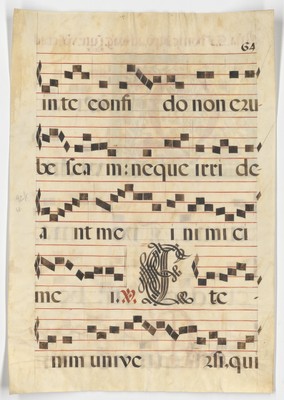 64
in te confi do non eru-
be sca m: neque irri de-
a nt me i nimi ci
me i. V. E te-
nim unive rsi. qui